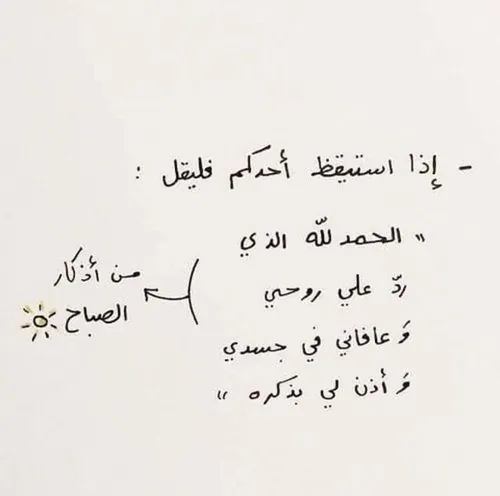 - إذا استيقظ أحدكم فليقل :
" الحمد للّه الذي
ردّ علي روحي
وَ عافاني في جسدي
وَ أذن لي بذكره "
من أذكار
الصباح